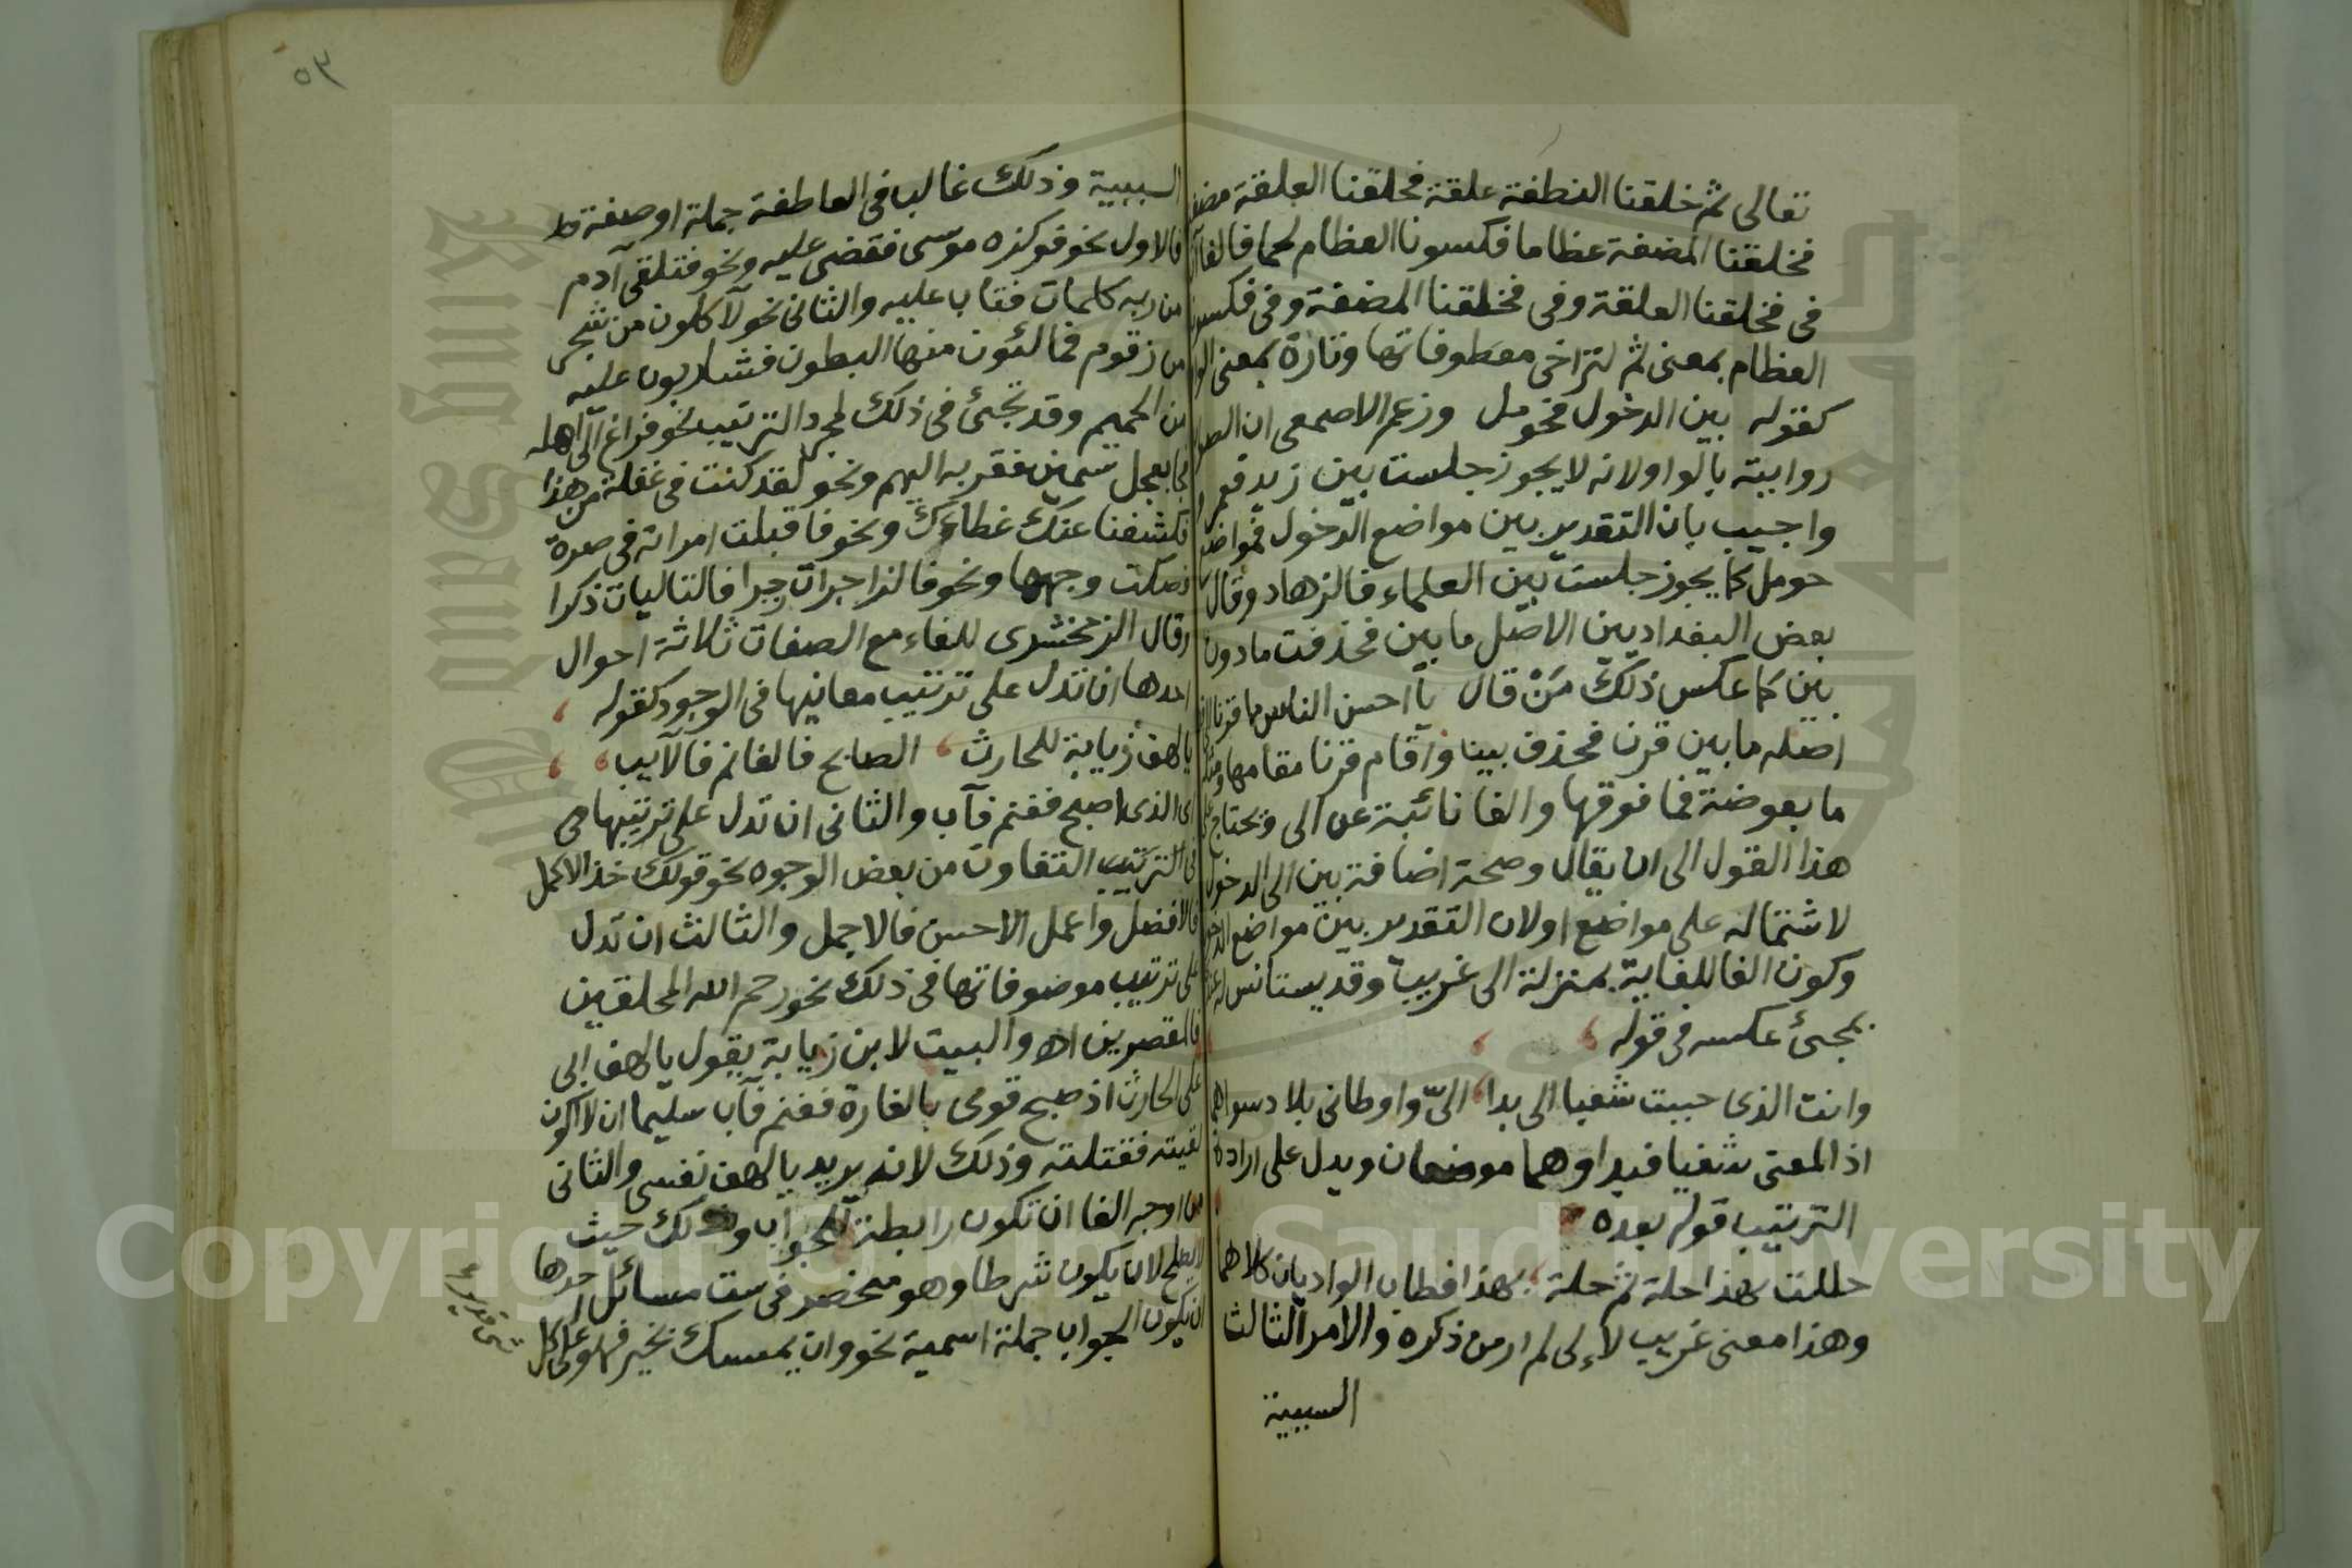 تعالى ثم خلقنا النطفة علقة فخلقنا العلقة مضغة
فخلقنا المضغة عظاما فكسونا العظام لحما فالفاآت
في فخلقنا العلقة وفي فخلقنا المضغة وفي فكسونا
العظام بمعنى ثم لتراخي معطوفاتها وتارة بمعنى الواو
كقوله بين الدخول فحومل وزعم الاصمعي ان الصواب
روايته بالواو لانه لا يجوز جلست بين زيد فعمرو
واجيب بان التقدير بين مواضع الدخول فمواضع
حومل كما يجوز جلست بين العلماء فالزهاد وقال
بعض البغداديين الاصل ما بين فحذفت ما دون
بين كما عكس ذلك من قال يا احسن الناس ما قرنا
اصله ما بين قرن فحذف بينا واقام قرنا مقامها ومثله
ما بعوضة فما فوقها والفا نائبة عن الى ويحتاج على
هذا القول الى ان يقال وصحة اضافة بين الى الدخول
لاشتماله على مواضع او لان التقدير بين مواضع الدخول
وكون الفا للغاية بمنزلة الى غريب وقد يستانس له
بمجئ عكسه في قوله
وانت الذي حببت شغبا الى بدا الىّ واوطاني بلاد سواهما
اذ المعنى شغبا فبدا وهما موضعان ويدل على ارادة
الترتيب قوله بعده
حللت بهذا حلة ثم حلة بهذا فطاب الواديان كلاهما
وهذا معنى غريب لالى لم ار من ذكره والامر الثالث
السببية
٥٣
السببية وذلك غالب في العاطفة جملة او صفة
فالاول نحو فوكزه موسى فقضى عليه ونحو فتلقى آدم
من ربه كلمات فتاب عليه والثاني نحو لآكلون من شجر
من زقوم فمالئون منها البطون فشاربون عليه
من الحميم وقد تجئ في ذلك لمجرد الترتيب نحو فراغ الى اهله
فجا بعجل سمين فقربه اليهم ونحو لقد كنت في غفلة من هذا
فكشفنا عنك غطاءك ونحو فاقبلت امراته في صرة
فصكت وجهها ونحو فالزاجرات زجرا فالتاليات ذكرا
وقال الزمخشري للفاء مع الصفات ثلاثة احوال
احدها ان تدل على ترتيب معانيها في الوجود كقوله
يا لهف زيابة للحارث الصابح فالغانم فالآيب
اي الذي اصبح فغنم فآب والثاني ان تدل على ترتيبها
في الترتيب التفاوت من بعض الوجوه نحو قولك خذ الاكمل
فالافضل واعمل الاحسن فالاجمل والثالث ان تدل
على ترتيب موضوفاتها في ذلك نحو رحم الله المحلقين
فالمقصرين اه والبيت لابن زيابة يقول يا لهف ابي
على الحارث اذ صبح قومي بالغارة فغنم فآب سليما ان لا اكون
لقيته فقتلته وذلك لانه يريد يا لهف نفسي والثاني
من اوجه الفا ان تكون رابطة للجواب وذلك حيث
لا يصلح لان يكون شرطا وهو منحصر في ست مسائل احدها
ان يكون الجواب جملة اسمية نحو وان يمسسك بخير فهو على كل
شي قدير